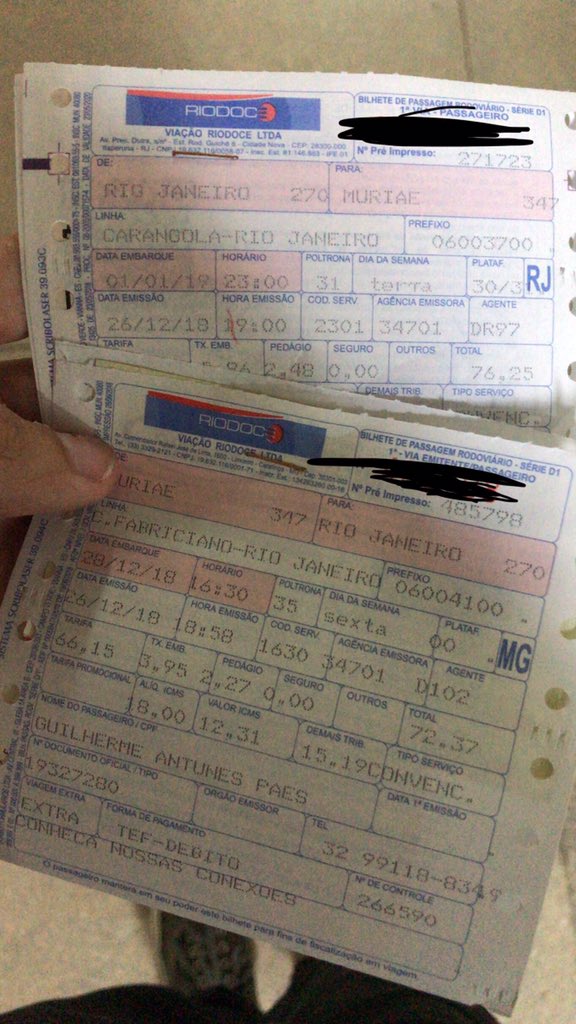 RIODOCE
VIAÇÃO RIODOCE LTDA
Av. Pres. Dutra, s/nº - Est. Rod. Guichê 8 - Cidade Nova - CEP: 28300-000
Itaperuna - RJ
BILHETE DE PASSAGEM RODOVIÁRIO - SÉRIE D1
1ª VIA - PASSAGEIRO
Nº Pré Impresso: 271723
DE: PARA:
RIO JANEIRO 270 MURIAE 347
LINHA: PREFIXO
CARANGOLA-RIO JANEIRO 06003700 .
DATA EMBARQUE HORÁRIO POLTRONA DIA DA SEMANA PLATAF. RJ
01/01/19 23:00 31 terra 30/3
DATA EMISSÃO HORA EMISSÃO COD. SERV AGÊNCIA EMISSORA AGENTE
26/12/18 19:00 2301 34701 DR97
TARIFA TX. EMB. PEDÁGIO SEGURO OUTROS TOTAL
2.48 0,00 76.25
DEMAIS TRIB. TIPO SERVIÇO
CONVENC.
SISTEMA SCRIBOLASER 39 093C
RIODOCE
VIAÇÃO RIODOCE LTDA
BILHETE DE PASSAGEM RODOVIÁRIO - SÉRIE D1
1ª - VIA EMITENTE/PASSAGEIRO
Nº Pré Impresso: 485798
DE PARA:
URIAE 347 RIO JANEIRO 270
LINHA PREFIXO
C.FABRICIANO-RIO JANEIRO 06004100 .
DATA EMBARQUE HORÁRIO POLTRONA DIA DA SEMANA PLATAF. MG
28/12/18 16:30 35 sexta 00 .
DATA EMISSÃO HORA EMISSÃO COD. SERV. AGÊNCIA EMISSORA AGENTE
26/12/18 18:58 1630 34701 D102
TARIFA TX. EMB. PEDÁGIO SEGURO OUTROS TOTAL
66.15 3.95 2.27 0.00 72.37
TARIFA PROMOCIONAL ALÍQ. ICMS VALOR ICMS DEMAIS TRIB. TIPO SERVIÇO
18.00 12.31 15.19CONVENC.
NOME DO PASSAGEIRO / CPF DATA 1ª EMISSÃO
GUILHERME ANTUNES PAES
Nº DOCUMENTO OFICIAL / TIPO ORGÃO EMISSOR TEL
19327280 32 99118-8349
VIAGEM EXTRA FORMA DE PAGAMENTO Nº DE CONTROLE
EXTRA TEF-DEBITO 266590
CONHECA NOSSAS CONEXOES
O passageiro manterá em seu poder este bilhete para fins de fiscalização em viagem.